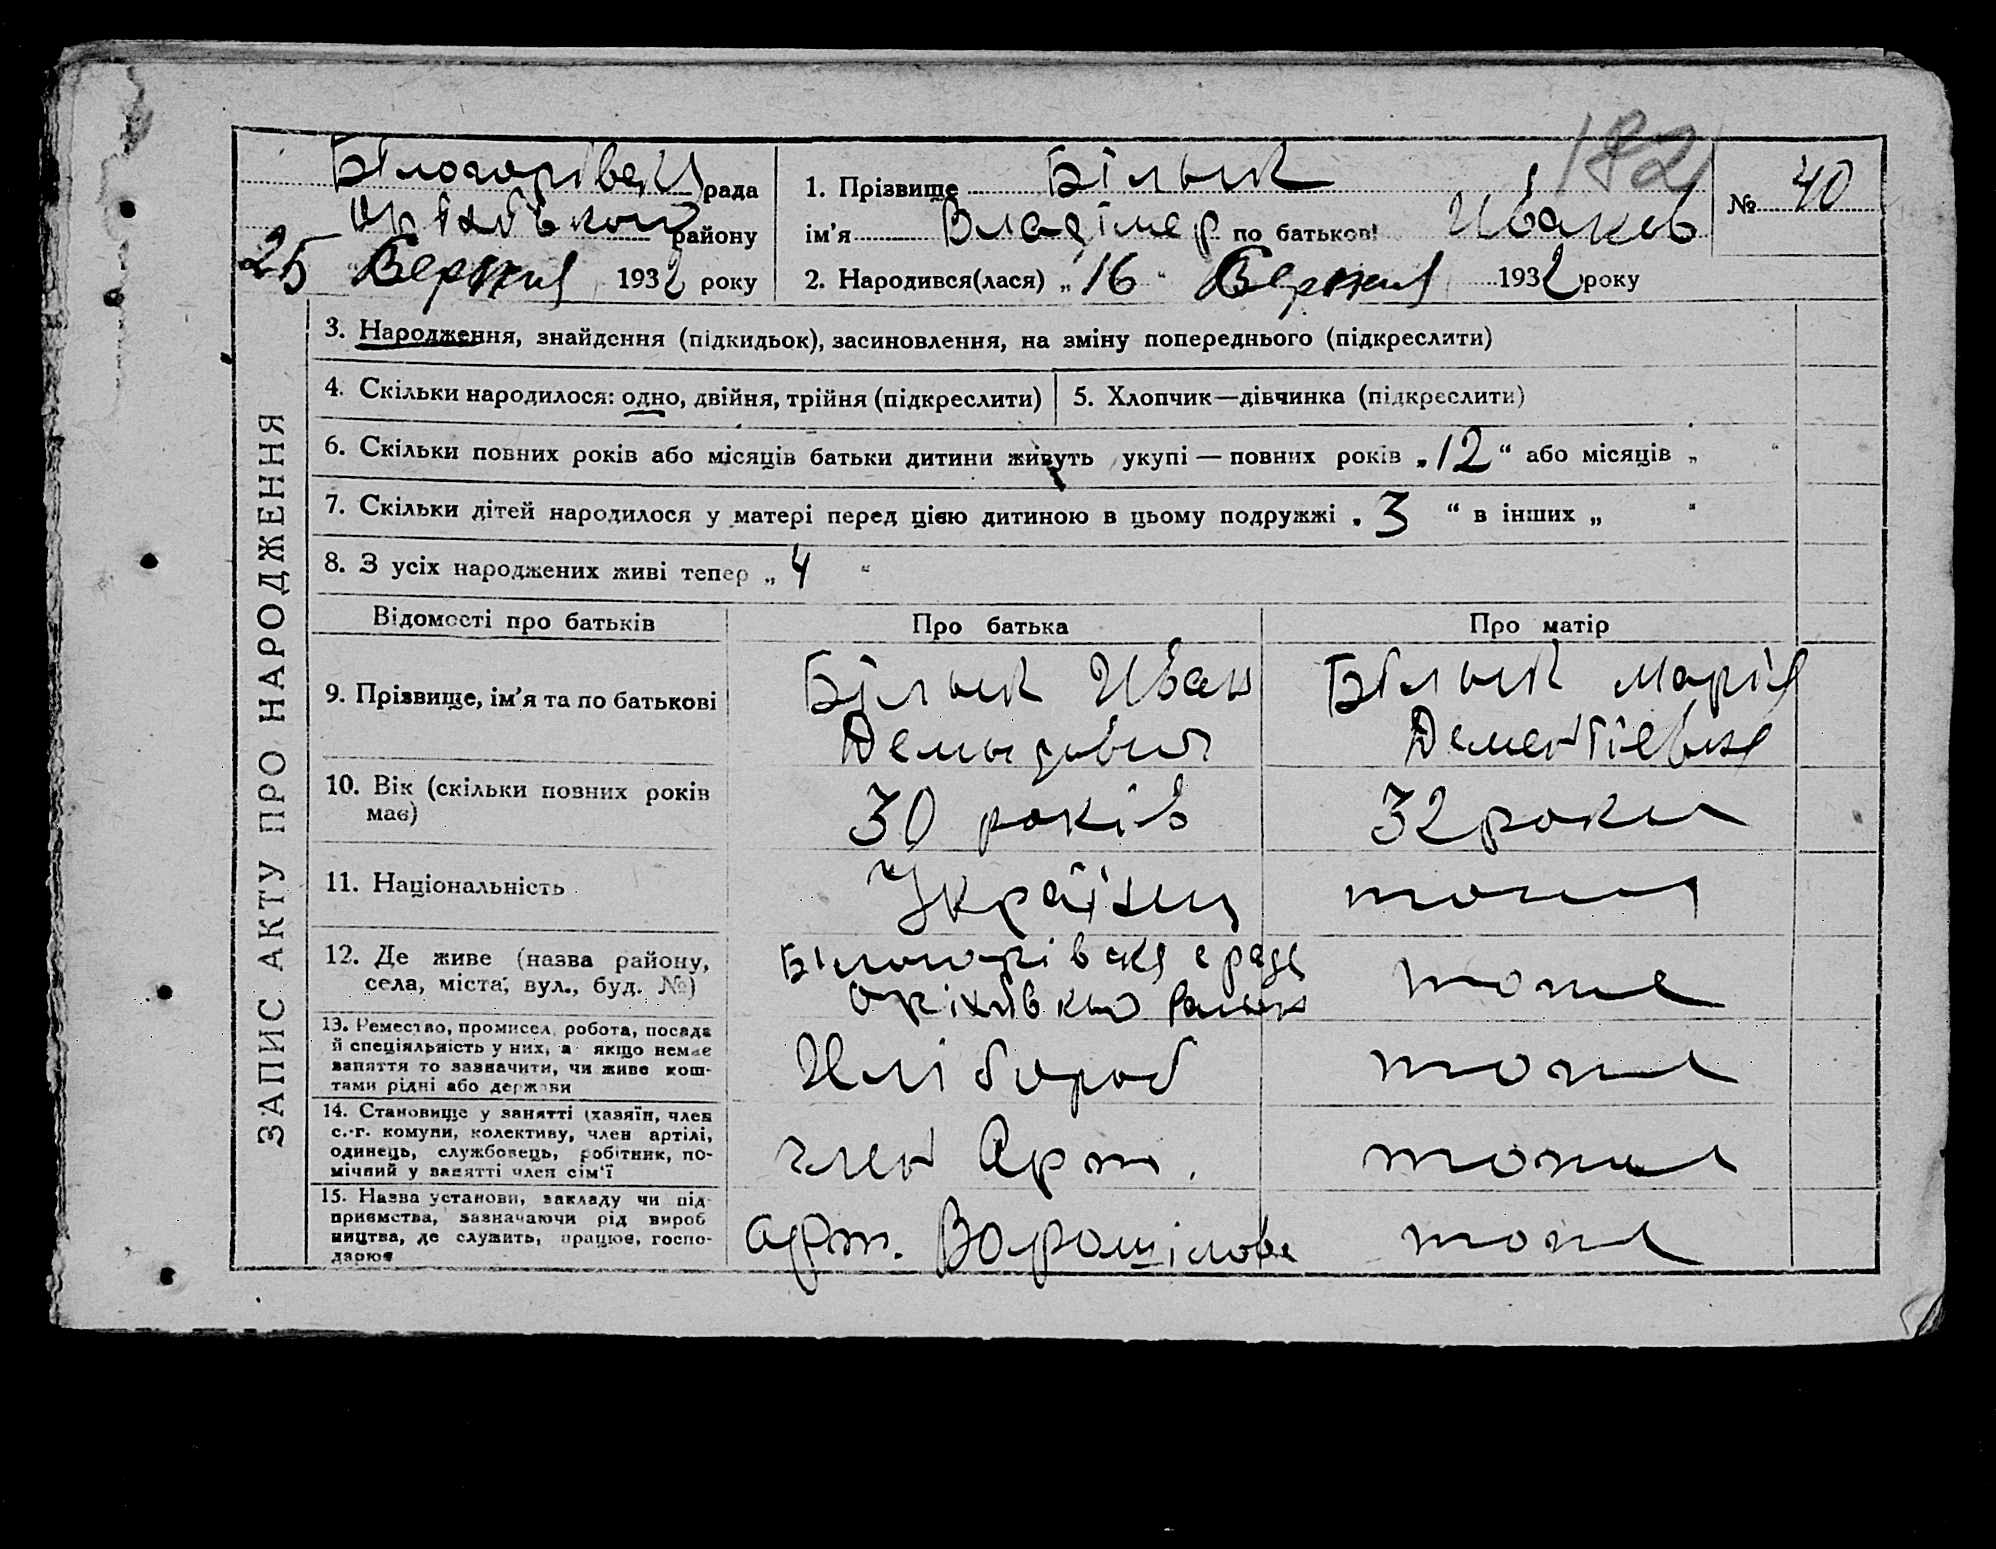 Білогорівська рада
Оріхівського району
25 „ Вересня 1932 року
1. Прізвище Білык
182
№ 40
ім’я Владімер по батькові Иванов
2. Народився(лася) „ 16 “ Вересня 1932 року
ЗАПИС АКТУ ПРО НАРОДЖЕННЯ
3. Народження, знайдення (підкидьок), засиновлення, на зміну попереднього (підкреслити)
4. Скільки народилося: одно, двійня, трійня (підкреслити)
5. Хлопчик—дівчинка (підкреслити)
6. Скільки повних років або місяців батьки дитини живуть укупі — повних років „ 12 “ або місяців „ “
7. Скільки дітей народилося у матері перед цією дитиною в цьому подружжі „ 3 “ в інших „ “
8. З усіх народжених живі тепер „ 4 “
Відомості про батьків
Про батька
Про матір
9. Прізвище, ім’я та по батькові
Білык Иван
Демыдович
Білык Марія
Дементіевна
10. Вік (скільки повних років
має)
30 років
32 роки
11. Національність
Українец
тоже
12. Де живе (назва району,
села, міста, вул., буд. №)
Білогорівска с рада
Оріхівського
тоже
13. Ремество, промисел, робота, посада
й спеціяльність у них, а якщо немає
заняття то зазначити, чи живе кош-
тами рідні або держави
Хлібороб
тоже
14. Становище у занятті (хазяїн, член
с.-г. комуни, колективу, член артілі,
одинець, службовець, робітник, по-
мічний у занятті член сім’ї
член Арт.
тоже
15. Назва установи, закладу чи під-
приємства, зазначаючи рід вироб
ництва, де служить, працює, госпо-
дарює
арт. Ворошілова
тоже